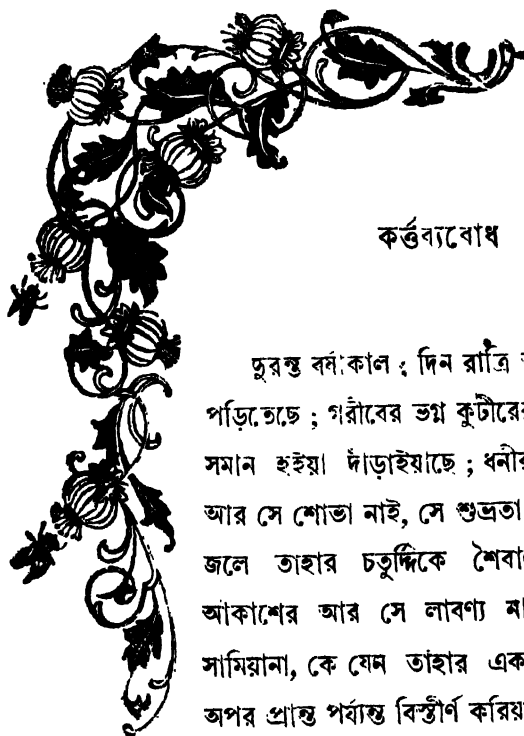 কর্ত্তব্যবোধ
দুরন্ত বর্ষাকাল ; দিন রাত্রি
পড়িতেছে ; গরীবের ভগ্ন কুটীরের
সমান হইয়া দাঁড়াইয়াছে ; ধনীর
আর সে শোভা নাই, সে শুভ্রতা
জলে তাহার চতুর্দ্দিকে
আকাশের আর সে লাবণ্য
সামিয়ানা, কে যেন তাহার
অপর প্রান্ত পর্য্যন্ত বিস্তীর্ণ